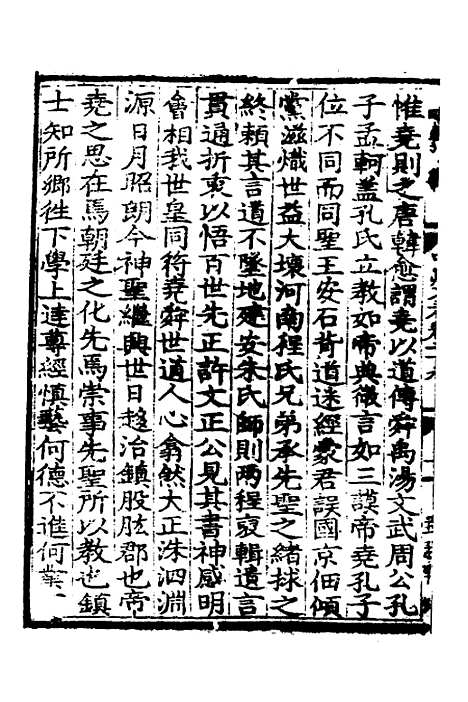 惟堯則之唐韓愈謂堯以道傳舜禹湯文武周公孔
子孟軻蓋孔氏立教如帝典微言如三謨帝堯孔子
位不同而同聖王安石背道迷經蒙君誤國京佃傾
黨滋熾世益大壞河南程氏兄弟承先聖之緒捄之
終賴其言道不墜地建安朱氏師則兩程裒輯遺言
貫通折衷以悟百世先正許文正公見其書神感明
會相我世皇同符堯舜世道人心翕然大正洙泗淵
源日月昭朗今神聖繼興世日趍治鎮股肱郡也帝
堯之思在焉朝廷之化先焉崇事先聖所以教也鎮
士知所鄉徃下學上達尊經慎藝何德不進何業